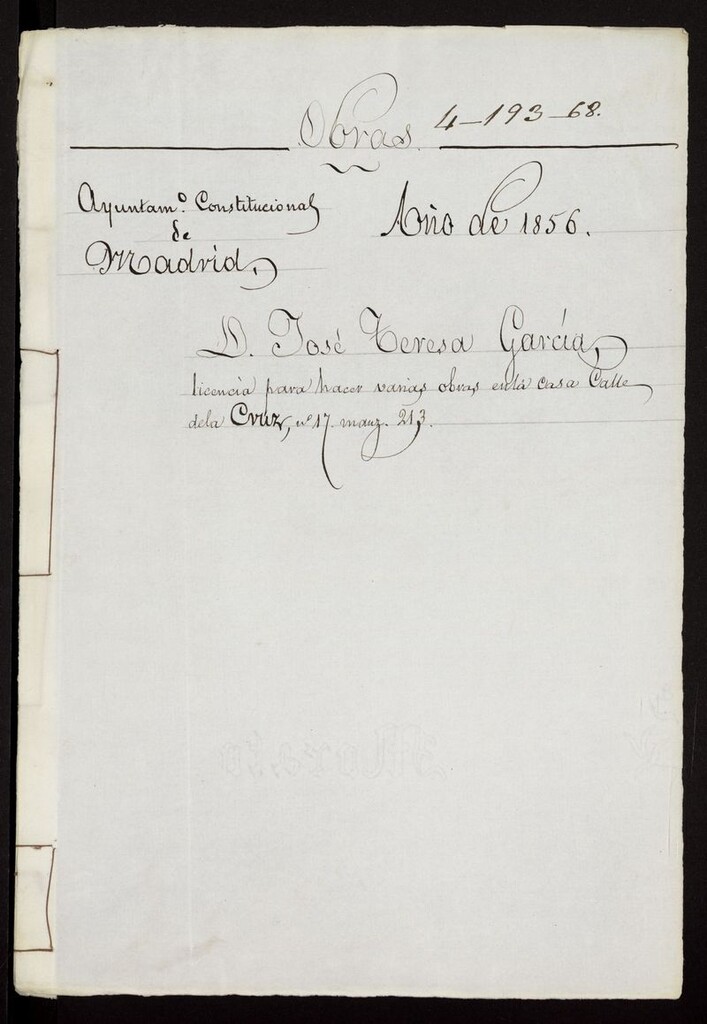 Obras. 4-193-68.
Ayuntam.º Constitucional
de
Madrid
Año de 1856.
D. José Teresa García,
licencia para hacer varias obras enla casa Calle
dela Cruz, nº 17. manz. 213.